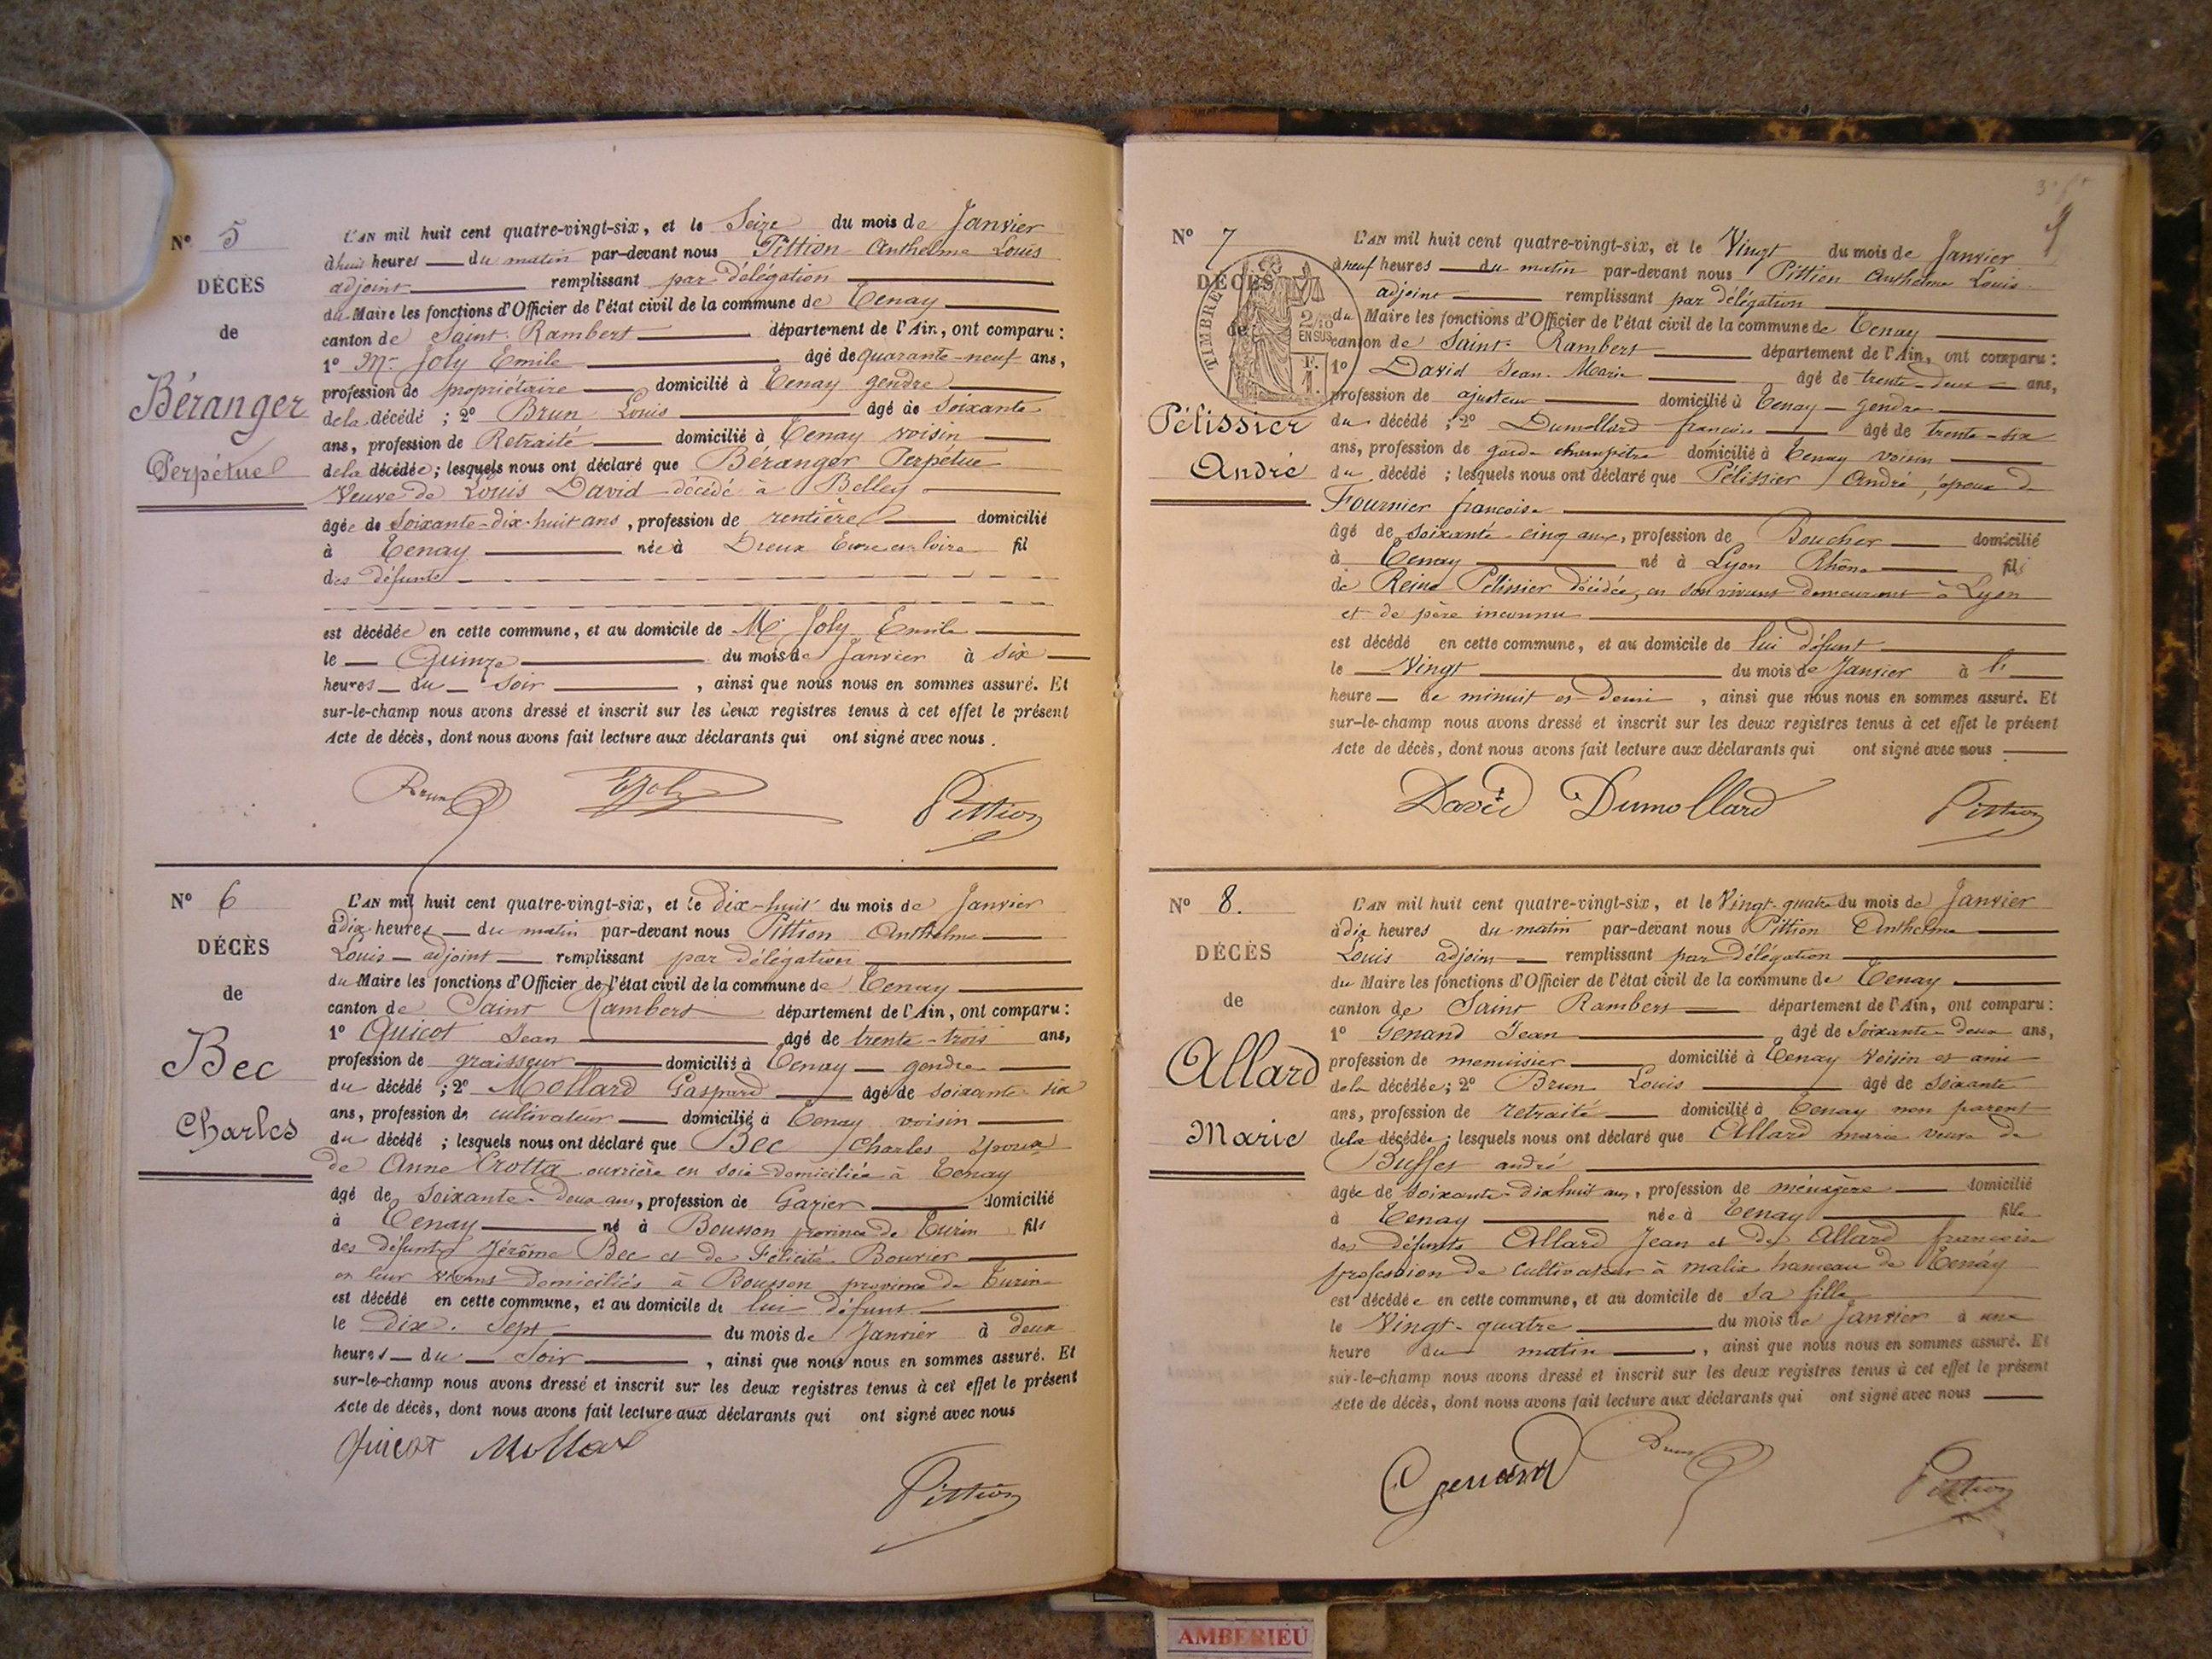 N° 5
DÉCÈS
de
Béranger
Perpétue
L'AN mil huit cent quatre-vingt-six, et le Seize du mois de Janvier
à huit heures du matin par-devant nous Pittion Anthelme Louis
adjoint remplissant par délégation
du Maire les fonctions d'Officier de l'état civil de la commune de Tenay
canton de Saint-Rambert département de l'Ain, ont comparu :
1° Mr Joly Emile âgé de quarante-neuf ans,
profession de propriétaire domicilié à Tenay gendre
de la décédé ; 2° Brun Louis âgé de soixante
ans, profession de Retraité domicilié à Tenay voisin
de la décédée ; lesquels nous ont déclaré que Béranger Perpétue
Veuve de Louis David décédé à Belley
âgée de soixante-dix-huit ans, profession de rentière domicilié
à Tenay née à Dreux Eure et loire fil
des défunts
est décédée en cette commune, et au domicile de Mr Joly Emile
le Quinze du mois de Janvier à six
heures du soir, ainsi que nous nous en sommes assuré. Et
sur-le-champ nous avons dressé et inscrit sur les deux registres tenus à cet effet le présent
Acte de décès, dont nous avons fait lecture aux déclarants qui ont signé avec nous.
Brun EJoly Pittion
N° 6
DÉCÈS
de
Bec
Charles
L'AN mil huit cent quatre-vingt-six, et le dix-huit du mois de Janvier
à dix heures du matin par-devant nous Pittion Anthelme
Louis adjoint remplissant par délégation
du Maire les fonctions d'Officier de l'état civil de la commune de Tenay
canton de Saint Rambert département de l'Ain, ont comparu :
1° Quicot Jean âgé de trente-trois ans,
profession de graisseur domicilié à Tenay gendre
du décédé ; 2° Mollard Gaspard âgé de soixante-six
ans, profession de cultivateur domicilié à Tenay voisin
du décédé ; lesquels nous ont déclaré que Bec Charles époux
de Anne Crotta ouvrière en soie domiciliée à Tenay
âgé de soixante-deux ans, profession de Gazier domicilié
à Tenay né à Bousson province de Turin fils
des défunts Jérôme Bec et de Félicité Bouvier
en leur vivans domiciliés à Bousson province de Turin
est décédé en cette commune, et au domicile de lui défunt
le dix-sept du mois de Janvier à deux
heures du soir, ainsi que nous nous en sommes assuré. Et
sur-le-champ nous avons dressé et inscrit sur les deux registres tenus à cet effet le présent
Acte de décès, dont nous avons fait lecture aux déclarants qui ont signé avec nous
Quicot Mollar
Pittion
9
N° 7
DÉCÈS
de
TIMBRE
2/10
EN SUS
F.
1.
Pélissier
André
L'AN mil huit cent quatre-vingt-six, et le Vingt du mois de Janvier
à neuf heures du matin par-devant nous Pittion Anthelme Louis
adjoint remplissant par délégation
du Maire les fonctions d'Officier de l'état civil de la commune de Tenay
canton de Saint-Rambert département de l'Ain, ont comparu :
1° David Jean-Marie âgé de trente-deux ans,
profession de ajusteur domicilié à Tenay gendre
du décédé ; 2° Dumollard françois âgé de trente-six
ans, profession de garde champêtre domicilié à Tenay voisin
du décédé ; lesquels nous ont déclaré que Pélissier André, époux de
Fournier françoise
âgé de soixante-cinq ans, profession de Boucher domicilié
à Tenay né à Lyon Rhône fils
de Reine Pélissier décédée, en son vivant demeurant à Lyon
et de père inconnu
est décédé en cette commune, et au domicile de lui défunt
le Vingt du mois de Janvier à l'
heure de minuit et demi, ainsi que nous nous en sommes assuré. Et
sur-le-champ nous avons dressé et inscrit sur les deux registres tenus à cet effet le présent
Acte de décès, dont nous avons fait lecture aux déclarants qui ont signé avec nous
David Dumollard Pittion
N° 8.
DÉCÈS
de
Allard
Marie
L'AN mil huit cent quatre-vingt-six, et le Vingt-quatre du mois de Janvier
à dix heures du matin par-devant nous Pittion Anthelme
Louis adjoint remplissant par délégation
du Maire les fonctions d'Officier de l'état civil de la commune de Tenay
canton de Saint Rambert département de l'Ain, ont comparu :
1° Génand Jean âgé de soixante-deux ans,
profession de menuisier domicilié à Tenay voisin et ami
de la décédée ; 2° Brun Louis âgé de soixante
ans, profession de retraité domicilié à Tenay non parent
de la décédée ; lesquels nous ont déclaré que Allard marie veuve de
Buffet andré
âgée de soixante-dix huit ans, profession de ménagère domicilié
à Tenay née à Tenay fille
des défunts Allard Jean et de Allard françoise
profession de cultivateur à malix hameau de Tenay
est décédée en cette commune, et au domicile de sa fille
le Vingt-quatre du mois de Janvier à une
heure du matin, ainsi que nous nous en sommes assuré. Et
sur-le-champ nous avons dressé et inscrit sur les deux registres tenus à cet effet le présent
Acte de décès, dont nous avons fait lecture aux déclarants qui ont signé avec nous
Genand Brun Pittion
AMBERIEU